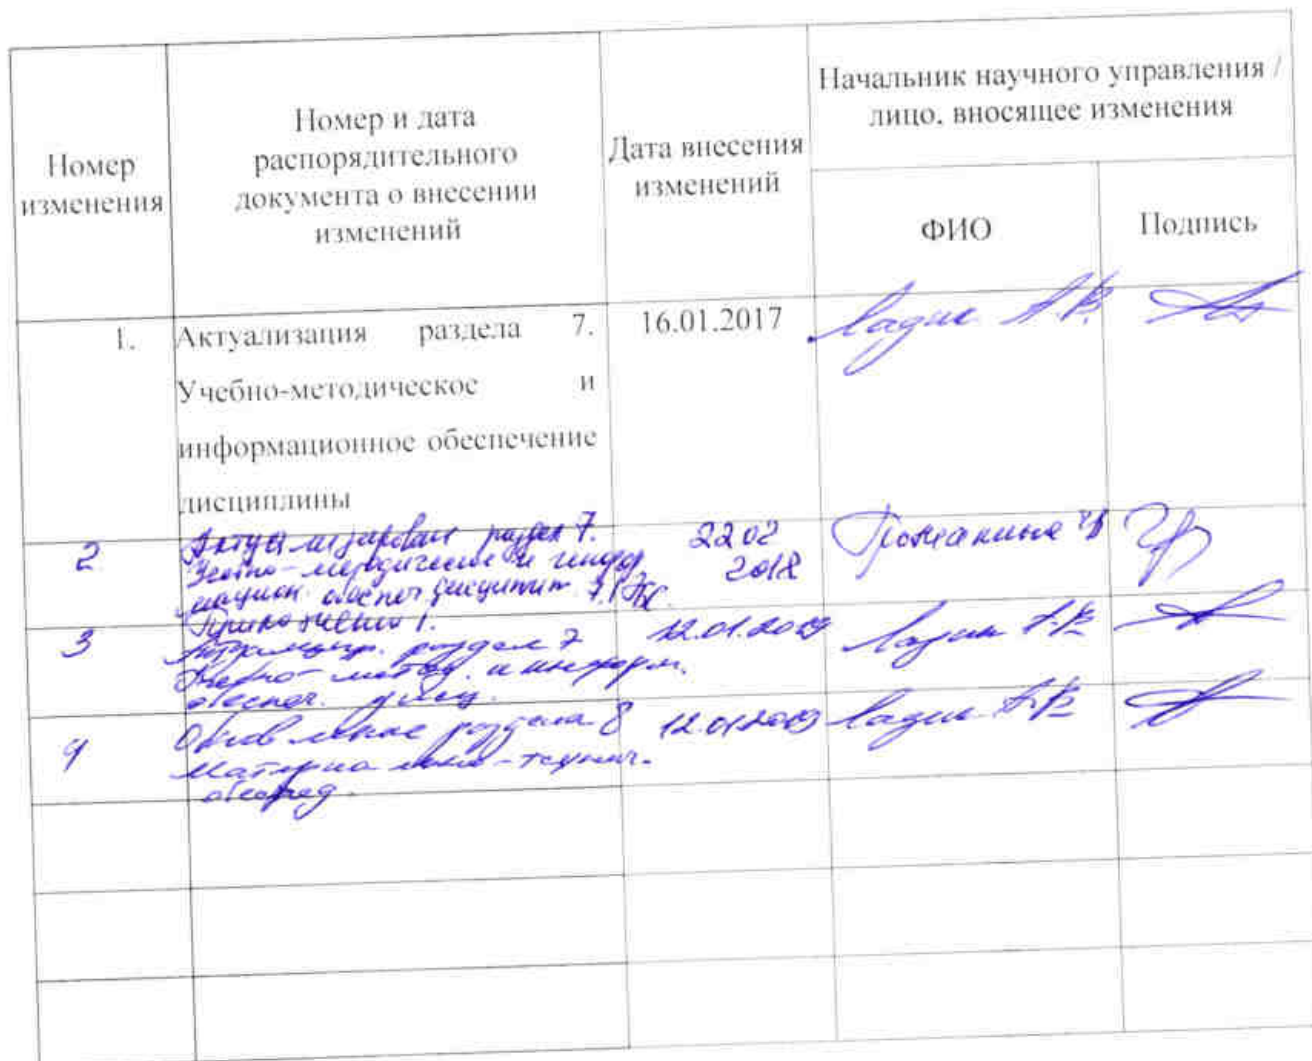 Номер
изменения
Номер и дата
распорядительного
документа о внесении
изменений
Дата внесения
изменений
Начальник научного управления /
лицо, вносящее изменения
ФИО
Подпись
1.
Актуализация раздела 7.
Учебно-методическое и
информационное обеспечение
дисциплины
16.01.2017
Ладик А.В.
2
раздел 7.
Учебно-методическое и
22 02
2018
Приложение 1.
3
раздел 7
Учебно-метод. и информ.
обеспеч. дисц.
12.01.2019
Ладик А.В.
4
раздела 8
материально-технич.
12.01.2019
Ладик А.В.